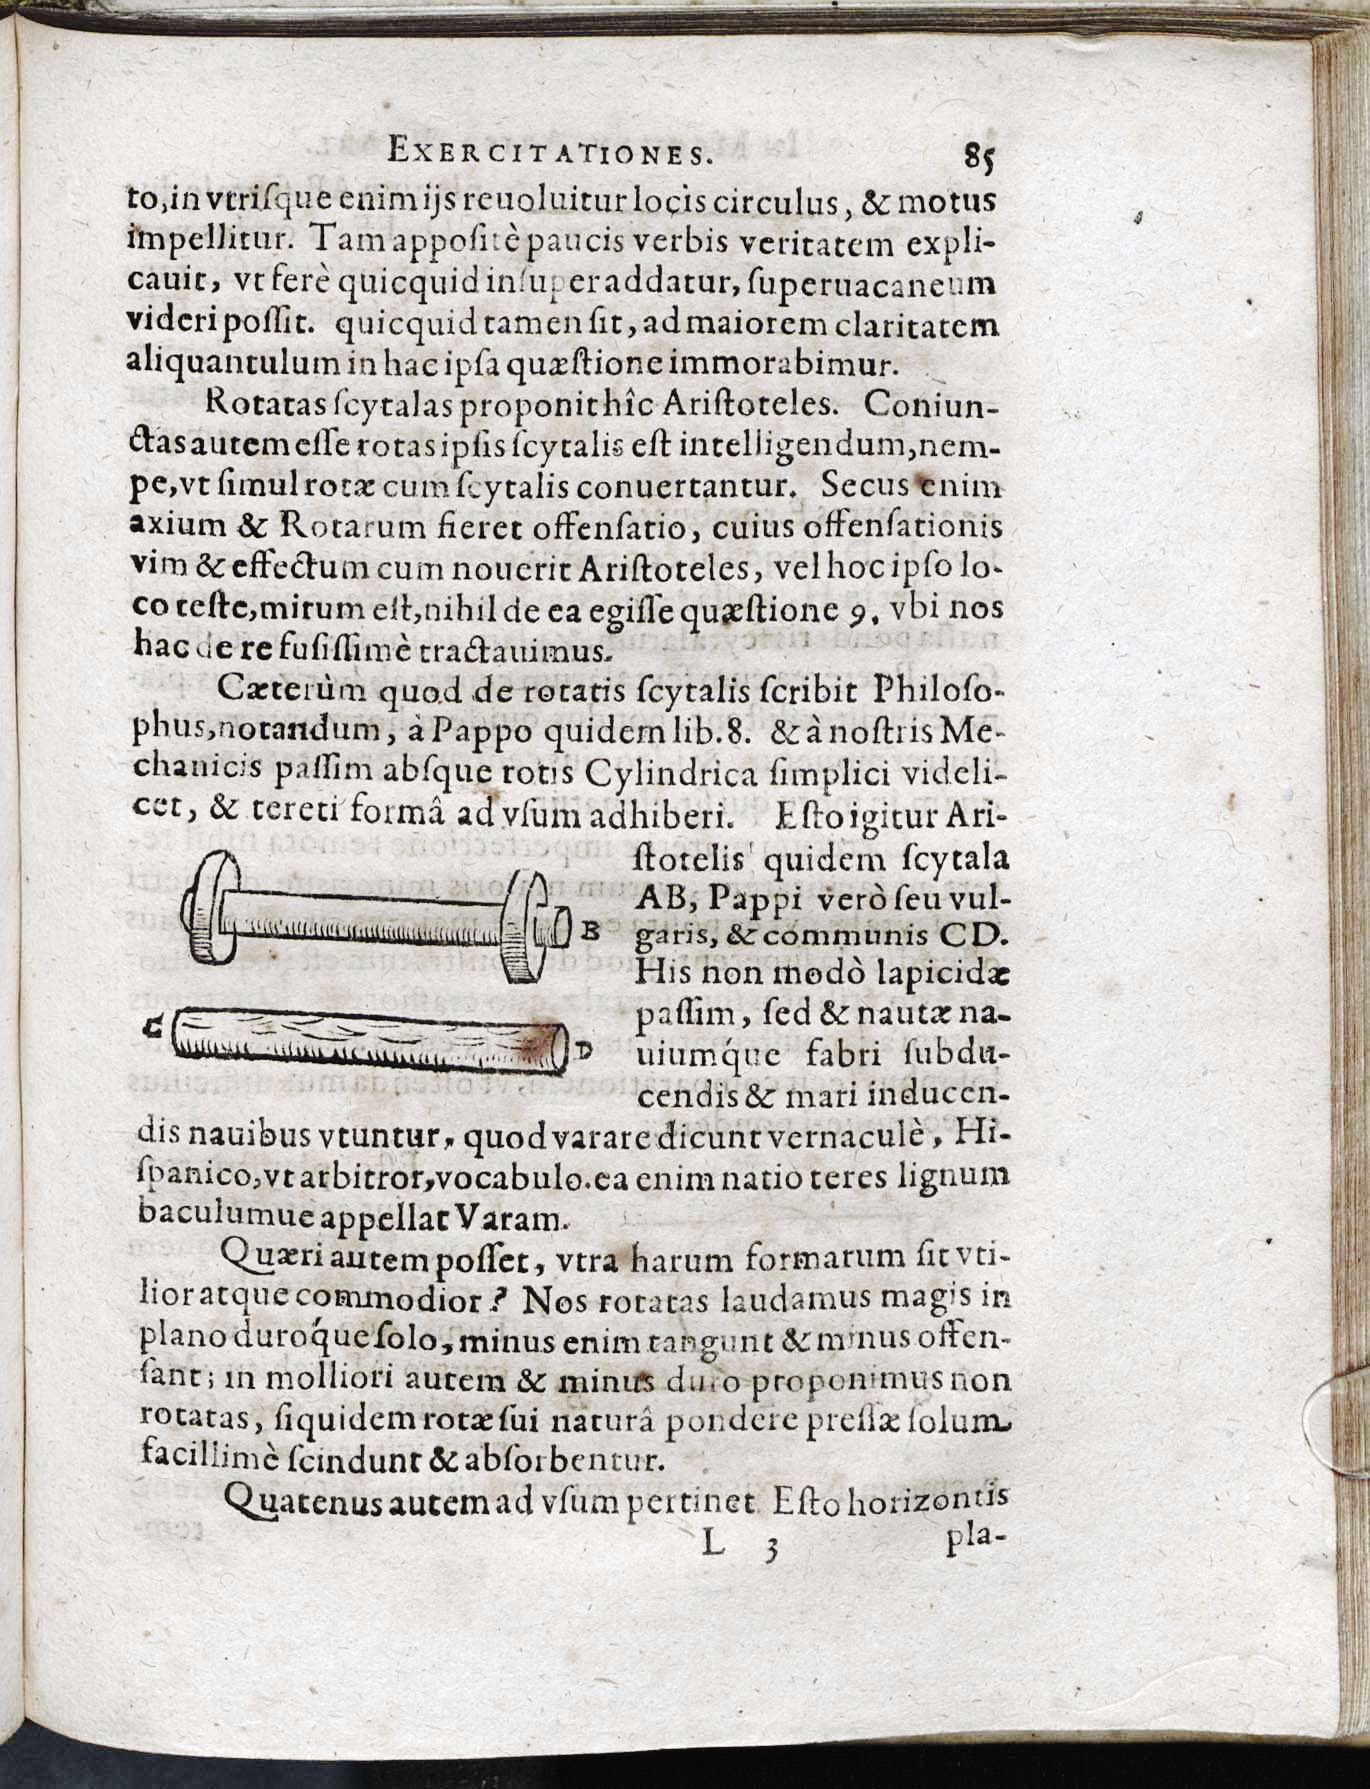 EXERCITATIONES. 85
to, in vtriſque enim ijs reuoluitur locis circulus, & motus
impellitur. Tam appoſitè paucis verbis veritatem expli-
cauit, vt ferè quicquid inſuper addatur, ſuperuacaneum
videri poſſit. quicquid tamen ſit, ad maiorem claritatem
aliquantulum in hac ipſa quæſtione immorabimur.
Rotatas ſcytalas proponit hîc Ariſtoteles. Coniun-
ctas autem eſſe rotas ipſis ſcytalis eſt intelligendum, nem-
pe, vt ſimul rotæ cum ſcytalis conuertantur. Secus enim
axium & Rotarum fieret offenſatio, cuius offenſationis
vim & effectum cum nouerit Ariſtoteles, vel hoc ipſo lo-
co teſte, mirum eſt, nihil de ea egiſſe quæſtione 9. vbi nos
hac de re fuſiſſimè tractauimus.
Cæterùm quod de rotatis ſcytalis ſcribit Philoſo-
phus, notandum, à Pappo quidem lib. 8. & à noſtris Me-
chanicis paſſim abſque rotis Cylindrica ſimplici videli-
cet, & tereti formâ ad vſum adhiberi. Eſto igitur Ari-
ſtotelis quidem ſcytala
AB, Pappi verò ſeu vul-
garis, & communis CD.
His non modò lapicidæ
paſſim, ſed & nautæ na-
uiumq́ue fabri ſubdu-
cendis & mari inducen-
B
C
D
dis nauibus vtuntur, quod varare dicunt vernaculè, Hi-
ſpanico, vt arbitror, vocabulo. ea enim natio teres lignum
baculumue appellat Varam.
Quæri autem poſſet, vtra harum formarum ſit vti-
lior atque commodior? Nos rotatas laudamus magis in
plano duroq́ue ſolo, minus enim tangunt & minus offen-
ſant; in molliori autem & minus duro proponimus non
rotatas, ſiquidem rotæ ſui naturâ pondere preſſæ ſolum
facillimè ſcindunt & abſorbentur.
Quatenus autem ad vſum pertinet Eſto horizontis
L 3 pla-